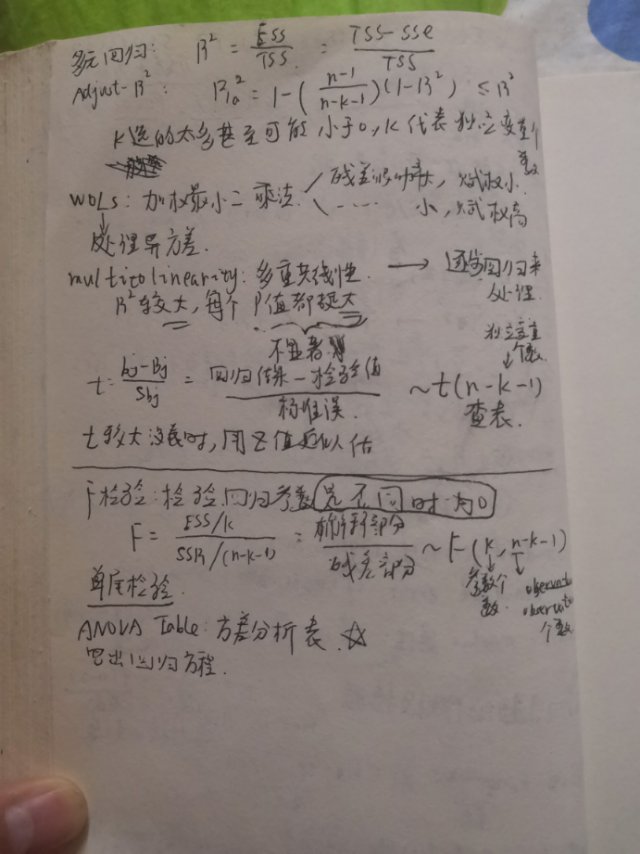 多元回归: R² = ESS/TSS = TSS-SSE/TSS
Adjust-R²: Ra² = 1-(n-1/n-k-1)(1-R²) ≤ R²
K选的太多甚至可能小于0, K代表独立变量个数
WOLS: 加权最小二乘法 残差 大, 赋权小
---- 小, 赋权高
处理异方差.
multicolinearity: 多重共线性. → 逐步回归来处理.
R²较大, 每个P值都挺大
不显著
独立变量个数
t = bj-Bj/Sbj = 回归结果-检验值/标准误 ~t(n-k-1)
查表.
t较大没表时, 用Z值近似估
F检验: 检验回归参数是否同时为0
F = ESS/k/SSR/(n-k-1) = 解释部分/残差部分 ~ F(k, n-k-1)
参数个数. observation个数
单尾检验.
ANOVA Table: 方差分析表. ☆
写出回归方程.